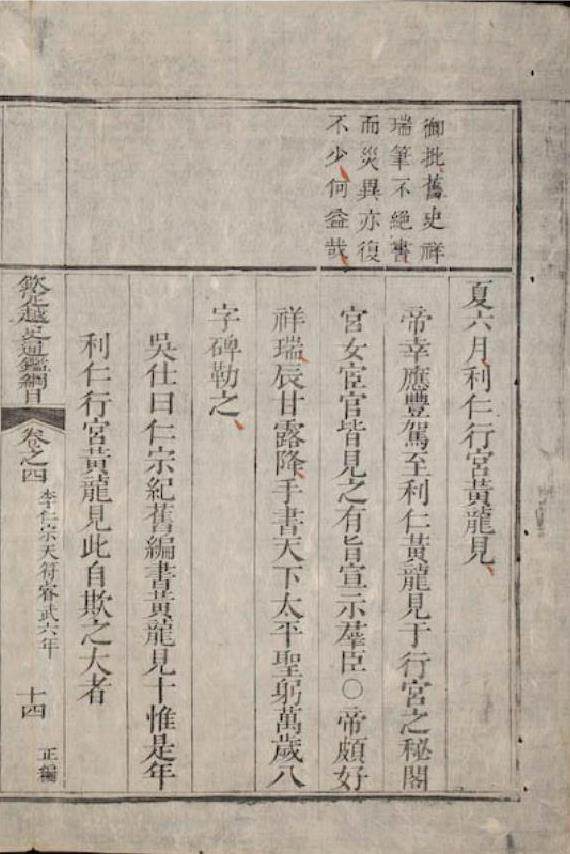 御批舊史祥
瑞筆不絕書
而災異亦復
不少何益哉
夏六月利仁行宮黃龍見
帝幸應豐駕至利仁黃龍見于行宮之秘閣
宮女宦官皆見之有旨宣示羣臣○帝頗好
祥瑞辰甘露降手書天下太平聖躬萬歲八
字碑勒之
吳仕曰仁宗紀舊編書黃龍見十惟是年
利仁行宮黃龍見此自欺之大者
欽定越史通鑑綱目
卷之四
李仁宗天符睿武六年
十四
正編